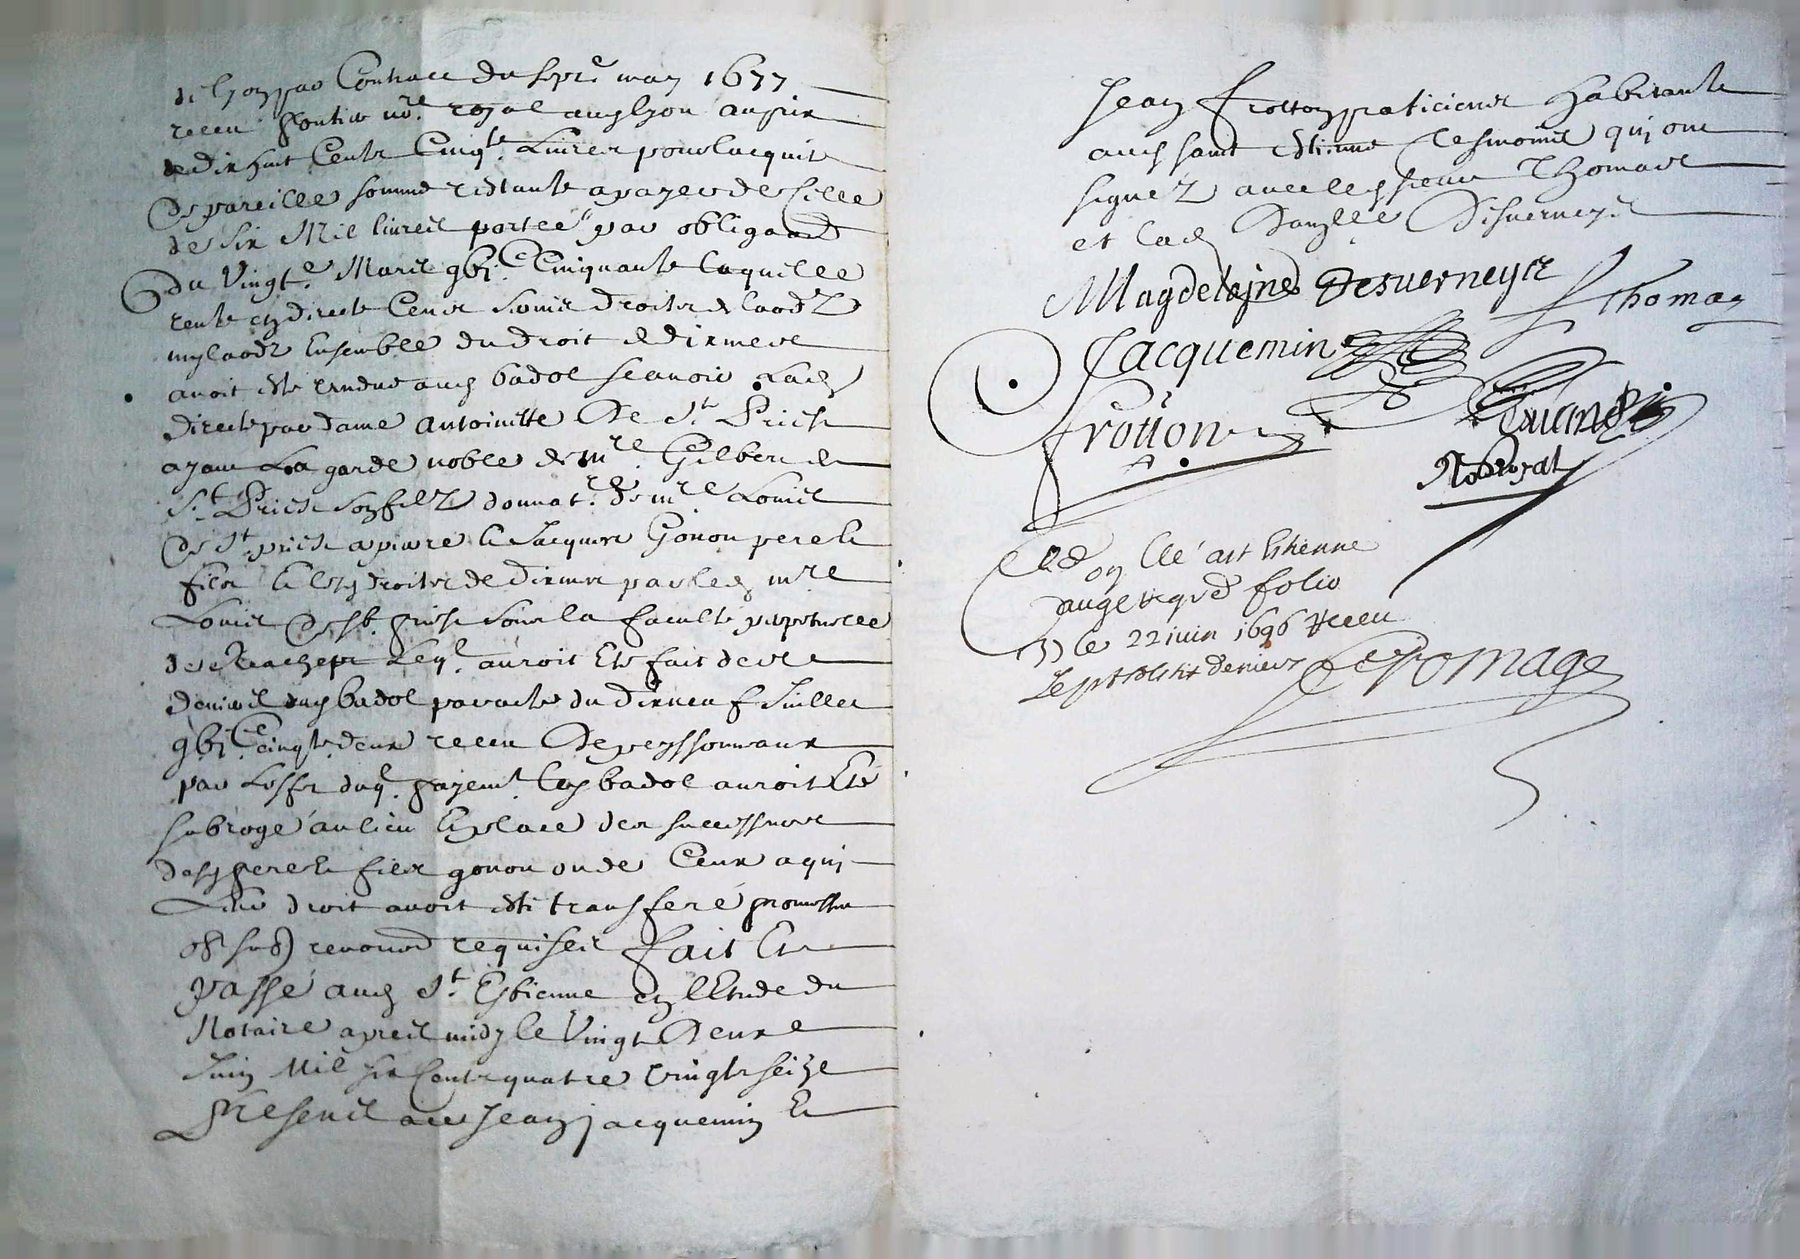 de Lyon par Contract du sept.e may 1677
receu Pontier no.re royal aud Lyon au prix
de dix huit Cents Cinq.te Livres pour lacquit
De pareille somme restante a payer de Celle
de six Mil livres portée par obliga.on
Du Vingt.e Mars gbi.C Cinquante laquelle
rente en directe Cens servis droits de laodz
mylaodz Ensemble du droit de dixmes
avoit esté vendue aud badol scavoir Lad
Directe par dame Antoinette De S.t Priest
ayant La garde noble de m.re Gilbert de
S.t Priest son filz donnat.re De m.re Louis
De S.t priest a piare & Jacques Gonon pere &
filz & lesd droits de dixmes par led m.re
Louis De S.t priest sous la faculté perpetuelle
de Reachept Leq.l auroit Eté fait desd
deniers dud badol par acte du dixneuf Juillet
gbi.C cinq.te deux receu Depeyssonneaux
par Leffet duq.l payem.t led badol auroit Eté
subrogé au lieu & place des successeurs
desd pere & filz gonon ou de Ceux a qui
Leur droit avoit esté transferé promettans
renon requises fait Et
Passé aud S.t Estienne en lEtude du
Notaire apres midy le Vingt Deuxe
Juin Mil six Cents quatre vingts seize
Presens a ce Jean jacquemin Et
Jean frotton praticiens habitants
aud saint Etienne tesmoins qui ont
signez avec led sieur Thomas
et lad Danzlle Desverneys
Magdelajne Desverneys
J Thomas
Jacquemin
frotton
No Royal
on Clé a st Etienne
folio
le 22 juin 1696 Receu
sept sols six deniers Depomage